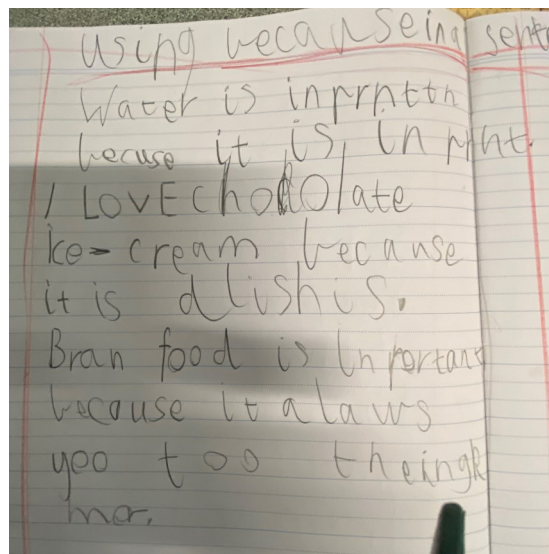 using because in a sent
Water is inprnttn
becuse it is, in prnt.
I LOVE chocolate
ice-cream because
it is dlishis.
Bran food is Inportant
because it alaws
yoo too theingk
mor.